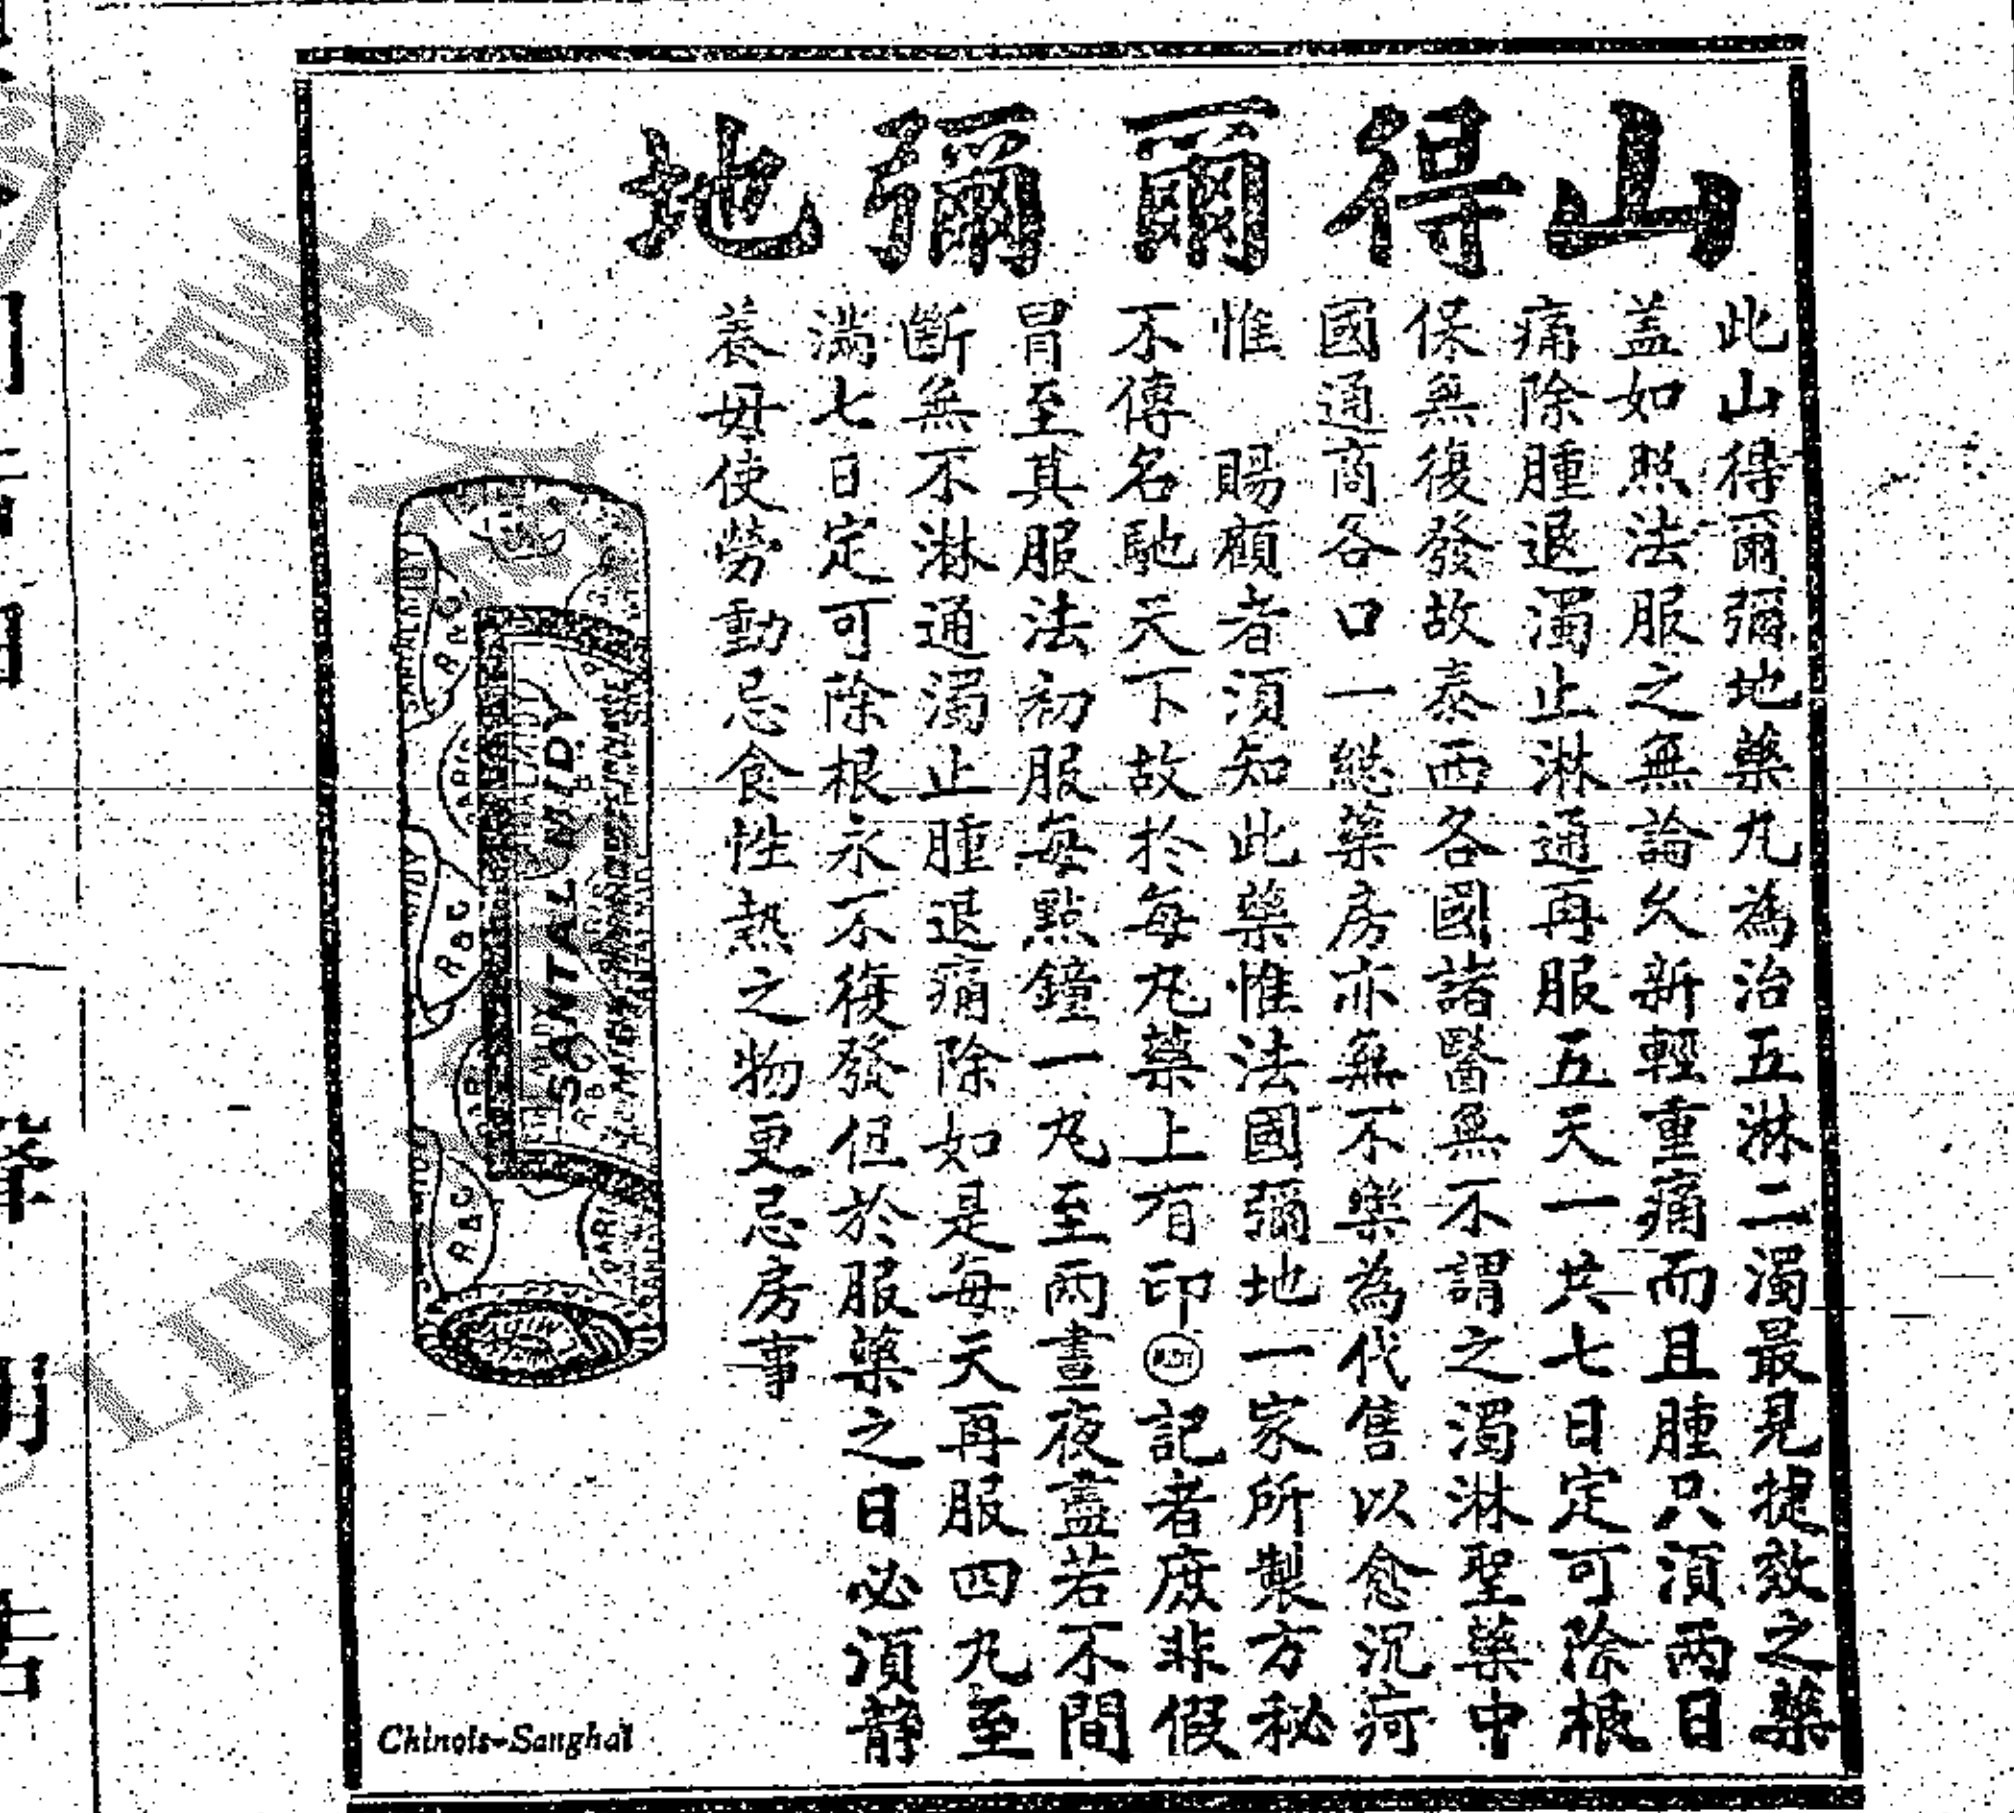 山得爾彌地
此山得爾彌地藥丸為治五淋二濁最見捷效之藥
蓋如照法服之無論久新輕重痛而且腫只須兩日
痛除腫退濁止淋通再服五天一共七日定可除根
保無復發故泰西各國諸醫無不謂之濁淋聖藥中
國通商各口一總藥房亦無不樂為代售以愈沉疴
惟 賜顧者須知此藥惟法國彌地一家所製方秘
不傳名馳天下故於每丸藥上有印記者庶非假
冒至其服法初服每點鐘一丸至兩晝夜盡若不間
斷無不淋通濁止腫退痛除如是每天再服四丸至
滿七日定可除根永不復發但於服藥之日必須靜
養毋使勞動忌食性熱之物更忌房事
SANTAL MIDY
R&C
R&C
R&C
Chinois-Sanghaï
LIBR